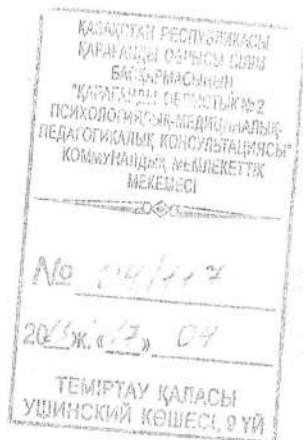 ҚАЗАҚСТАН РЕСПУБЛИКАСЫ
ҚАРАҒАНДЫ ОБЛЫСЫ БІЛІМ
БАСҚАРМАСЫНЫҢ
"ҚАРАҒАНДЫ ОБЛЫСТЫҚ №2
ПСИХОЛОГИЯЛЫҚ-МЕДИЦИНАЛЫҚ-
ПЕДАГОГИКАЛЫҚ КОНСУЛЬТАЦИЯСЫ"
КОММУНАЛДЫҚ МЕМЛЕКЕТТІК
МЕКЕМЕСІ
№ 04/117
20 ж. «17» 04
ТЕМІРТАУ ҚАЛАСЫ
УШИНСКИЙ КӨШЕСІ, 9 ҮЙ